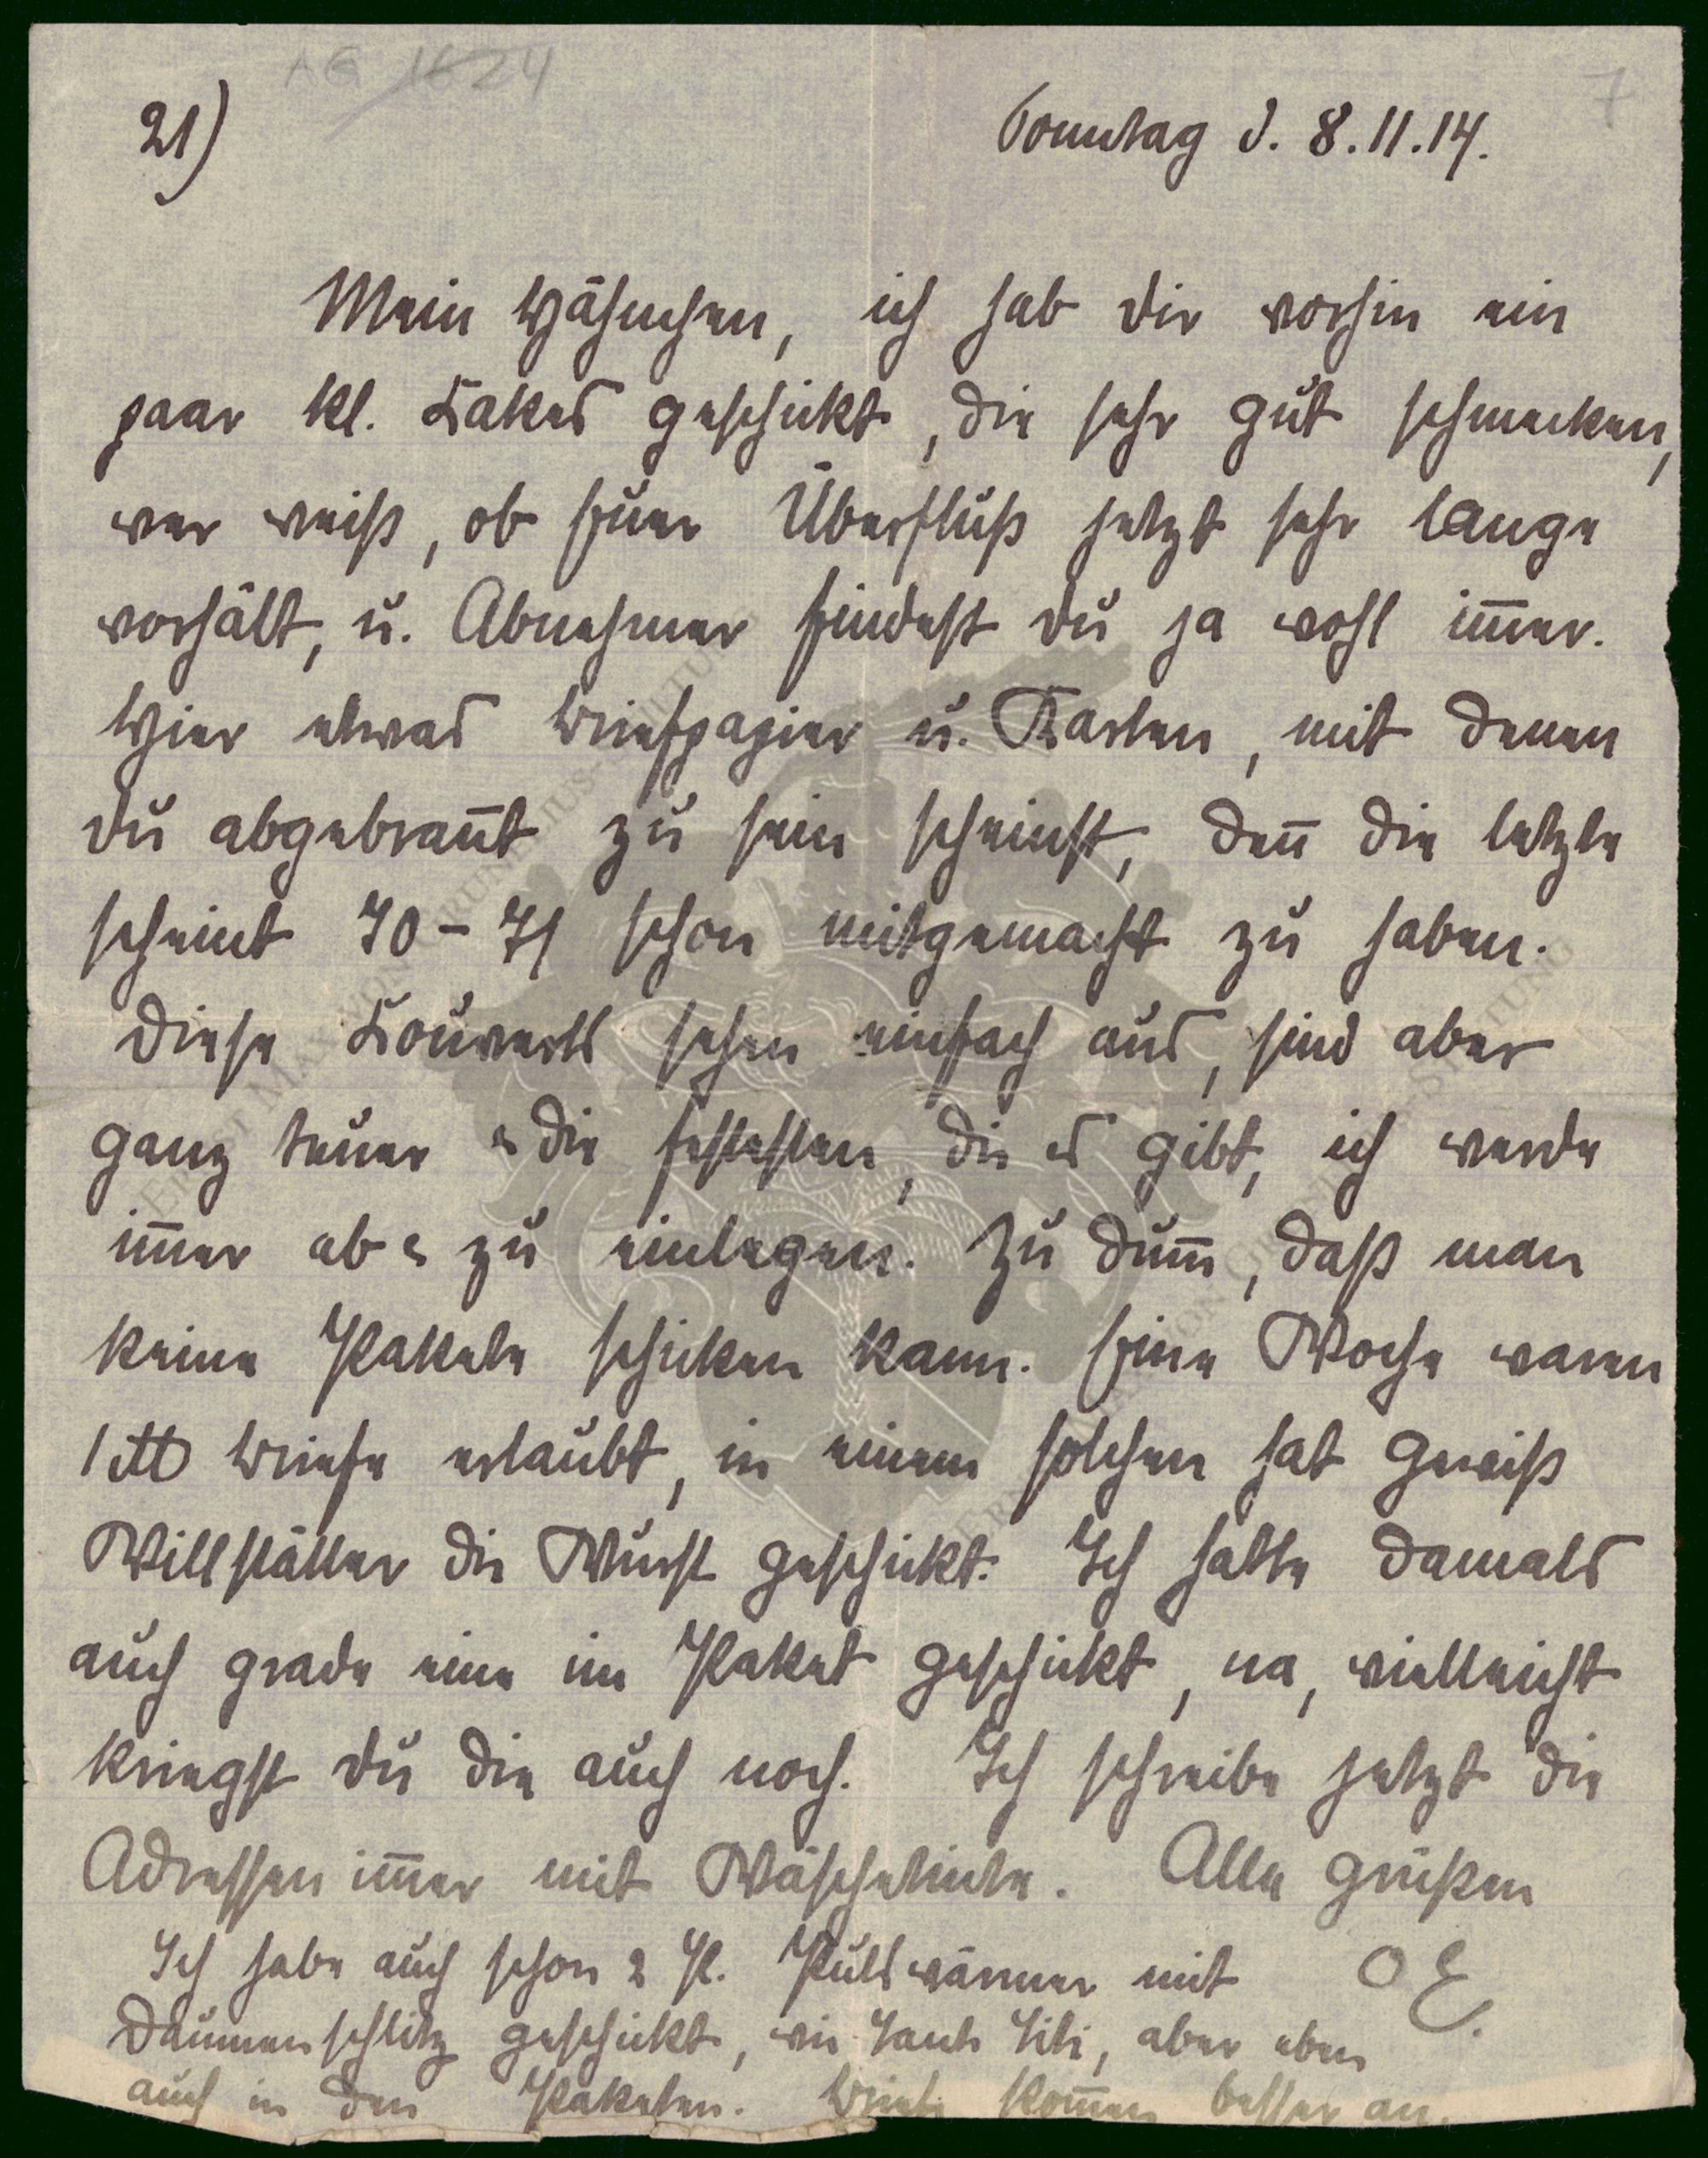 AG 1624
7
21)
Sonntag d. 8.11.14.
Mein Hähnchen, ich hab dir vorhin ein
paar kl. Cakes geschickt, die sehr gut schmecken,
wer weiß, ob Euer Überfluß jetzt sehr lange
vorhält, u. Abnehmer findest du ja wohl im̅er.
Hier etwas Briefpapier u. Karten, mit denen
du abgebran̅t zu sein scheinst, den̅ die letzte
scheint 70-71 schon mitgemacht zu haben.
Diese Couverts sehen einfach aus, sind aber
ganz teuer & die festesten, die es gibt, ich werde
im̅er ab & zu einlegen. Zu dum̅, daß man
keine Pakete schicken kann. Eine Woche waren
1 ℔ Briefe erlaubt, in einem solchen hat gewiß
Willstätter die Wurst geschickt. Ich hatte damals
auch grade eine im Paket geschickt, na, vielleicht
kriegst du die auch noch. Ich schreibe jetzt die
Adressen im̅er mit Wäschetinte. Alle grüßen
O E.
Ich habe auch schon 2 P. Pulswärmer mit
Daumenschlitz geschickt, wie Tante Lili, aber eben
auch in den Paketen. Briefe kom̅en besser an.